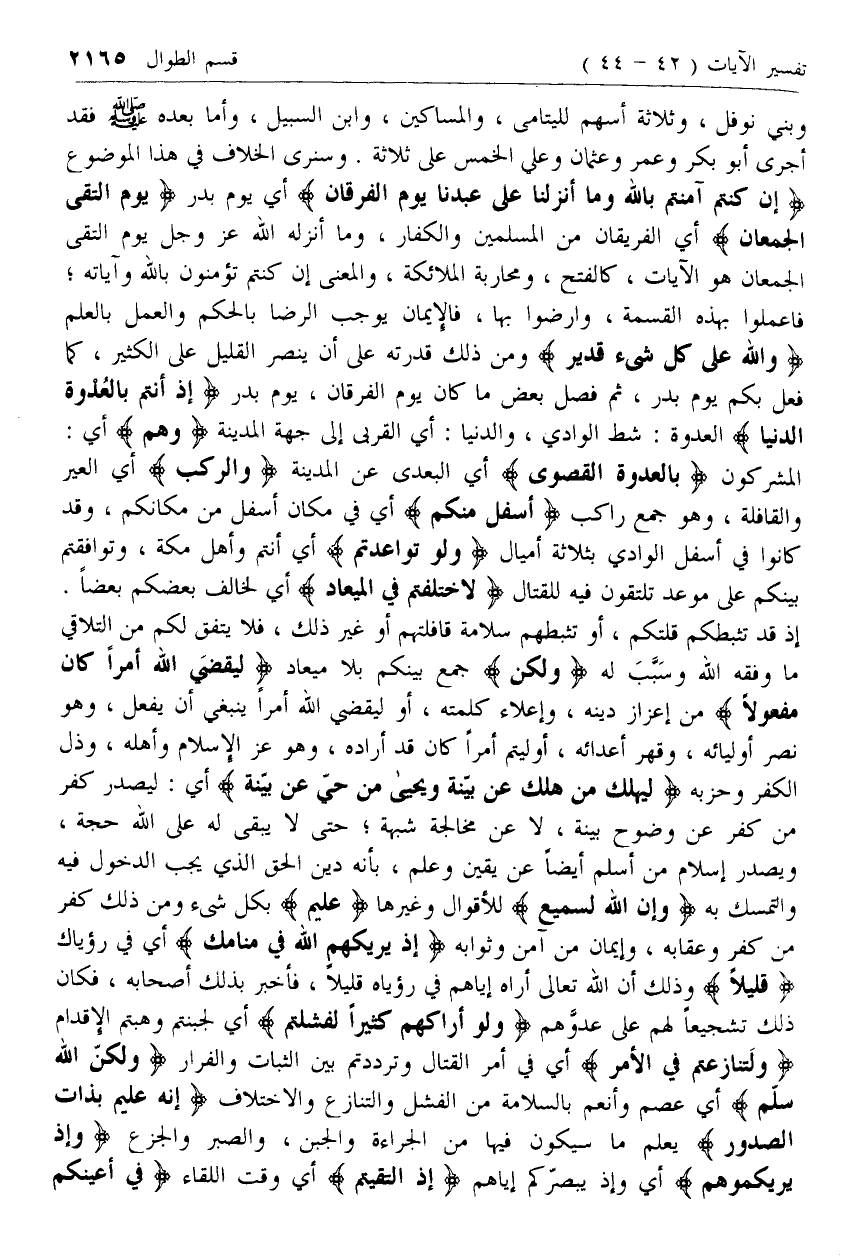 تفسير الآيات ( ٤٢ - ٤٤ ) قسم الطوال ٢١٦٥
وبني نوفل ، وثلاثة أسهم لليتامى ، والمساكين ، وابن السبيل ، وأما بعده ﷺ فقد
أجرى أبو بكر وعمر وعثمان وعلي الخمس على ثلاثة . وسنرى الخلاف في هذا الموضوع
﴿ إن كنتم آمنتم بالله وما أنزلنا على عبدنا يوم الفرقان ﴾ أي يوم بدر ﴿ يوم التقى
الجمعان ﴾ أي الفريقان من المسلمين والكفار ، وما أنزله الله عز وجل يوم التقى
الجمعان هو الآيات ، كالفتح ، ومحاربة الملائكة ، والمعنى إن كنتم تؤمنون بالله وآياته ؛
فاعملوا بهذه القسمة ، وارضوا بها ، فالإيمان يوجب الرضا بالحكم والعمل بالعلم
﴿ والله على كل شىء قدير ﴾ ومن ذلك قدرته على أن ينصر القليل على الكثير ، كما
فعل بكم يوم بدر ، ثم فصل بعض ما كان يوم الفرقان ، يوم بدر ﴿ إذ أنتم بالعُدْوة
الدنيا ﴾ العدوة : شط الوادي ، والدنيا : أي القربى إلى جهة المدينة ﴿ وهم ﴾ أي :
المشركون ﴿ بالعدوة القصوى ﴾ أي البعدى عن المدينة ﴿ والركب ﴾ أي العير
والقافلة ، وهو جمع راكب ﴿ أسفل منكم ﴾ أي في مكان أسفل من مكانكم ، وقد
كانوا في أسفل الوادي بثلاثة أميال ﴿ ولو تواعدتم ﴾ أي أنتم وأهل مكة ، وتوافقتم
بينكم على موعد تلتقون فيه للقتال ﴿ لاختلفتم في الميعاد ﴾ أي لخالف بعضكم بعضاً .
إذ قد تثبطكم قلتكم ، أو تثبطهم سلامة قافلتهم أو غير ذلك ، فلا يتفق لكم من التلاقي
ما وفقه الله وسَبَّبَ له ﴿ ولكن ﴾ جمع بينكم بلا ميعاد ﴿ ليقضيَ الله أمراً كان
مفعولاً ﴾ من إعزاز دينه ، وإعلاء كلمته ، أو ليقضي الله أمراً ينبغي أن يفعل ، وهو
نصر أوليائه ، وقهر أعدائه ، أوليتم أمراً كان قد أراده ، وهو عز الإسلام وأهله ، وذل
الكفر وحزبه ﴿ ليهلك من هلك عن بيّنة ويحيىٰ من حيّ عن بيّنة ﴾ أي : ليصدر كفر
من كفر عن وضوح بينة ، لا عن مخالجة شبهة ؛ حتى لا يبقى له على الله حجة ،
ويصدر إسلام من أسلم أيضاً عن يقين وعلم ، بأنه دين الحق الذي يجب الدخول فيه
والتمسك به ﴿ وإن الله لسميع ﴾ للأقوال وغيرها ﴿ عليم ﴾ بكل شىء ومن ذلك كفر
من كفر وعقابه ، وإيمان من آمن وثوابه ﴿ إذ يريكهم الله في منامك ﴾ أي في رؤياك
﴿ قليلاً ﴾ وذلك أن الله تعالى أراه إياهم في رؤياه قليلاً ، فأخبر بذلك أصحابه ، فكان
ذلك تشجيعاً لهم على عدوّهم ﴿ ولو أراكهم كثيراً لفشلتم ﴾ أي لجبنتم وهبتم الإقدام
﴿ ولَتنازعتم في الأمر ﴾ أي في أمر القتال وترددتم بين الثبات والفرار ﴿ ولكنّ الله
سلّم ﴾ أي عصم وأنعم بالسلامة من الفشل والتنازع والاختلاف ﴿ إنه عليم بذات
الصدور ﴾ يعلم ما سيكون فيها من الجراءة والجبن ، والصبر والجزع ﴿ وإذ
يريكموهم ﴾ أي وإذ يبصّركم إياهم ﴿ إذ التقيتم ﴾ أي وقت اللقاء ﴿ في أعينكم